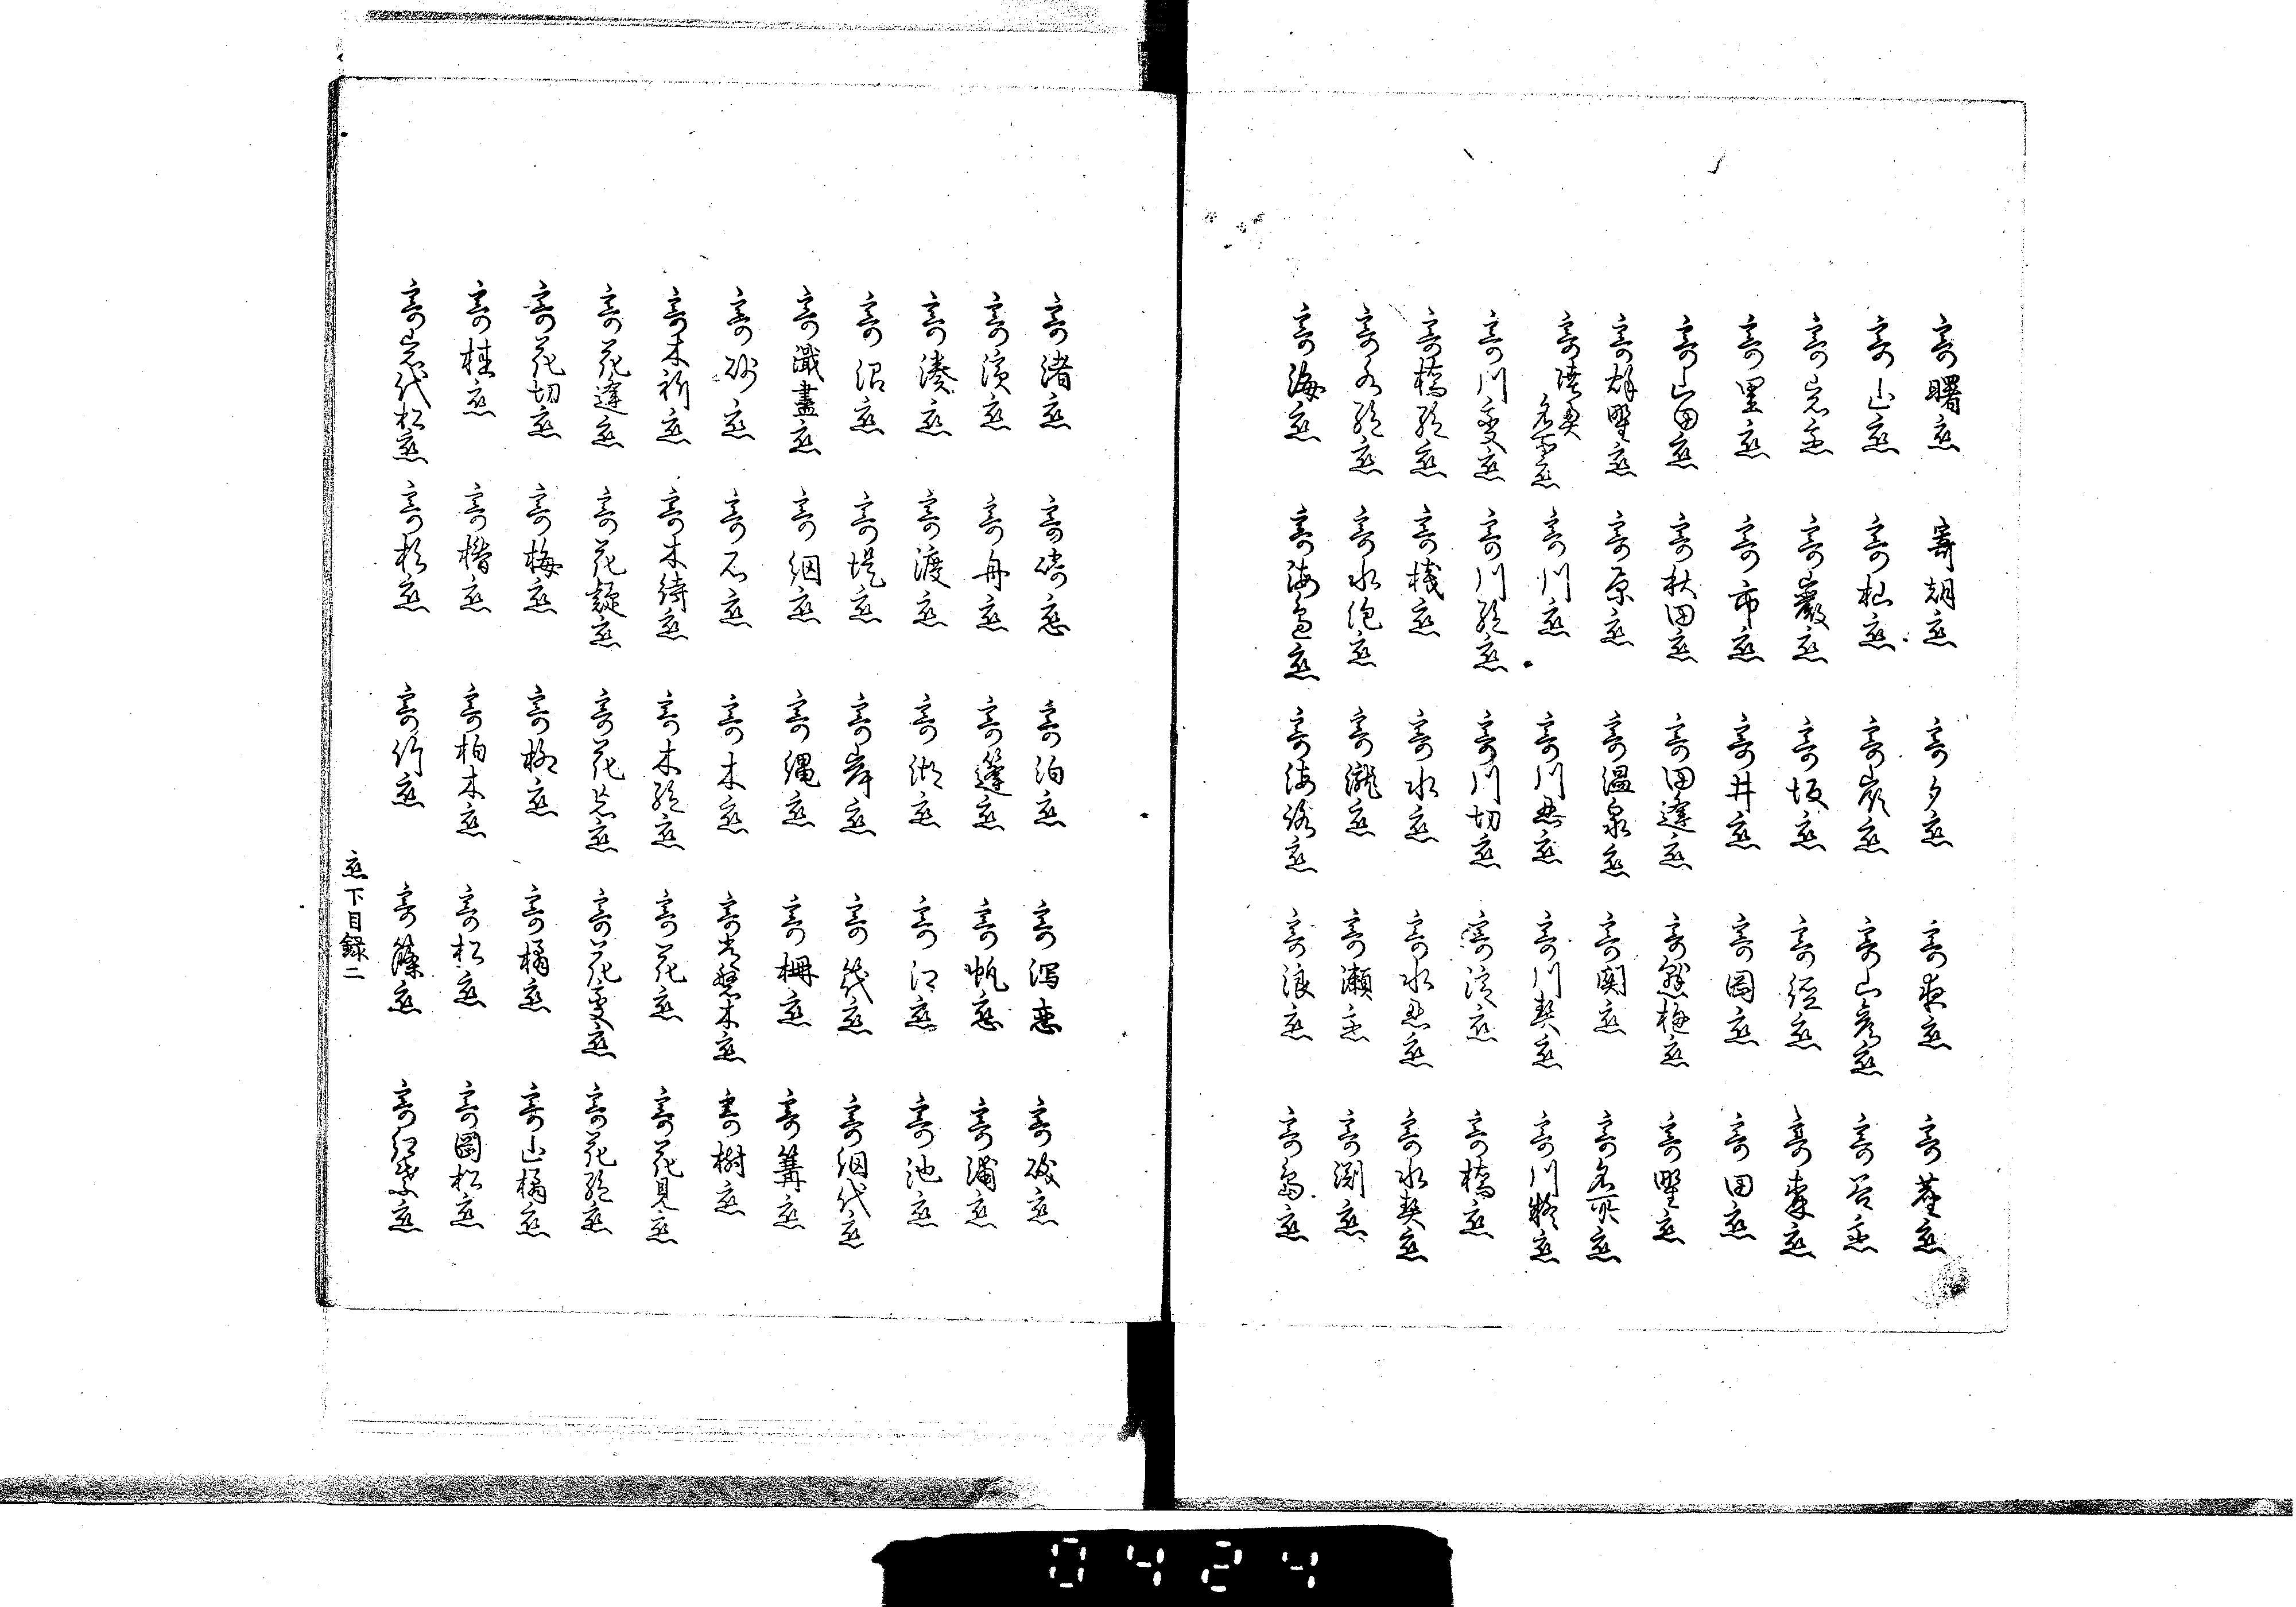 寄曙恋 寄朝恋 寄夕恋 寄夜恋
寄山恋 寄杣恋 寄嶺恋 寄山彦恋 寄谷恋
寄巌恋 寄坂恋 寄径恋
寄里恋 寄市恋 寄井恋 寄岡恋 寄田恋
寄山田恋 寄秋田恋 寄田逢恋 寄野恋
寄野恋 寄原恋 寄温泉恋 寄関恋 寄名所恋
寄川恋 寄川忍恋 寄川契恋
寄川変恋 寄川絶恋 寄川切恋 寄橋恋
寄橋絶恋 寄桟恋 寄水恋 寄水忍恋 寄水契恋
寄水泡恋 寄滝恋 寄瀬恋 寄渕恋
寄海恋 寄海辺恋 寄海路恋 寄浪恋 寄島恋
寄渚恋 寄磯恋 寄泊恋 寄潟恋
寄浜恋 寄舟恋 寄篷恋 寄帆恋 寄浦恋
寄湊恋 寄渡恋 寄湖恋 寄江恋 寄池恋
寄沼恋 寄堤恋 寄岸恋 寄筏恋 寄網代恋
寄澱盡恋 寄網恋 寄縄恋 寄柵恋 寄篝恋
寄砂恋 寄石恋 寄木恋 寄常盤木恋 寄樹恋
寄木祈恋 寄木待恋 寄木絶恋 寄花恋 寄花見恋
寄花逢恋 寄花疑恋 寄花忘恋 寄花変恋 寄花絶恋
寄花切恋 寄梅恋 寄柳恋 寄橘恋 寄山橘恋
寄桂恋 寄楷恋 寄柏木恋 寄松恋 寄岡松恋
寄杉恋 寄竹恋 寄篠恋 寄紅葉恋
恋下目録二
0424